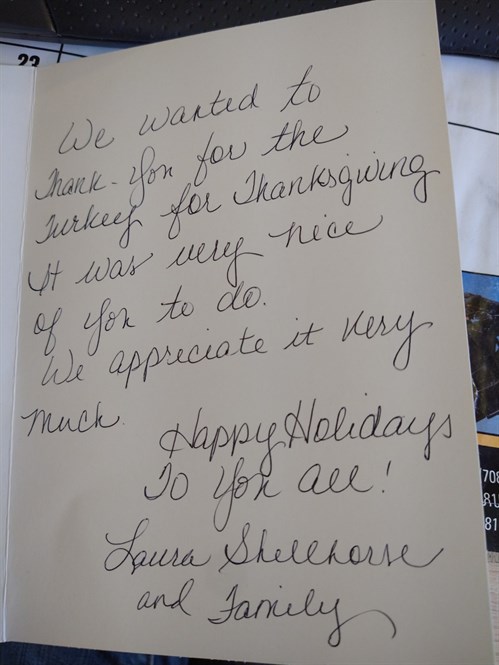 23
We wanted to
Thank-you for the
Turkey for Thanksgiving
It was very nice
of you to do.
We appreciate it very
much
Happy Holidays
To You all!
Laura
and Family
708
81